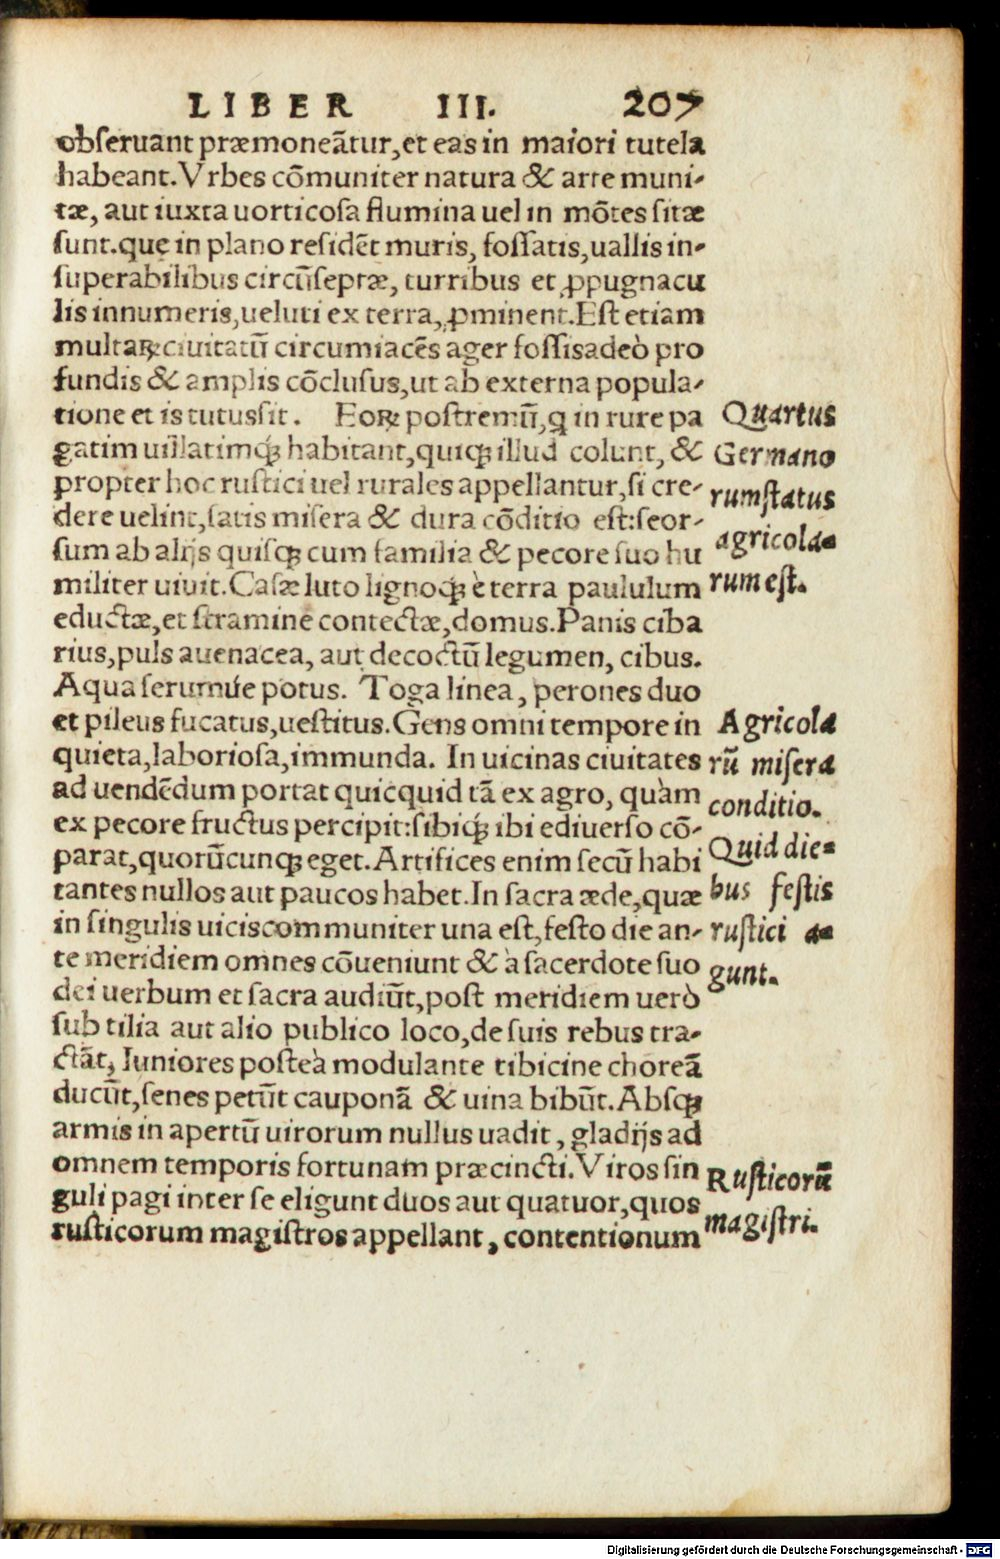 LIBER III. 207
obseruant præmoneãtur, et eas in maiori tutela
habeant. Vrbes cõmuniter natura & arte muni-
tæ, aut iuxta uorticosa flumina uel in mõtes sitæ
sunt. quę in plano residẽt muris, fossatis, uallis in-
superabilibus circũseptæ, turribus et ꝓpugnacu
lis innumeris, ueluti ex terra, ꝓminent. Est etiam
multaꝝ ciuitatũ circumiacẽs ager fossis adeò pro
fundis & amplis cõclusus, ut ab externa popula-
tione et is tutus sit. Eoꝝ postremũ, q̃ in rure pa
gatim uillatimq̃ꝫ habitant, quiqꝫ illud colunt, &
propter hoc rustici uel rurales appellantur, si cre-
dere uelint, satis misera & dura cõditio est: seor-
sum ab alijs quisqꝫ cum familia & pecore suo hu
militer uiuit. Casæ luto lignoq̃ꝫ è terra paululum
eductæ, et stramine contectæ, domus. Panis ciba
rius, puls auenacea, aut decoctũ legumen, cibus.
Aqua serumúe potus. Toga linea, perones duo
et pileus fucatus, uestitus. Gens omni tempore in
quieta, laboriosa, immunda. In uicinas ciuitates
ad uendẽdum portat quicquid tã ex agro, quàm
ex pecore fructus percipit: sibiq̃ꝫ ibi ediuerso cõ-
parat, quorũcunqꝫ eget. Artifices enim secũ habi
tantes nullos aut paucos habet. In sacra æde, quæ
in singulis uicis communiter una est, festo die an-
te meridiem omnes cõueniunt & à sacerdote suo
dei uerbum et sacra audiũt, post meridiem uerò
sub tilia aut alio publico loco, de suis rebus tra-
ctãt, Iuniores posteà modulante tibicine choreã
ducũt, senes petũt cauponã & uina bibũt. Absqꝫ
armis in apertũ uirorum nullus uadit, gladijs ad
omnem temporis fortunam præcincti. Viros sin
guli pagi inter se eligunt duos aut quatuor, quos
rusticorum magistros appellant, contentionum
Quartus
Germano
rum status
agricola-
rum est.
Agricola
rũ misera
conditio.
Quid die-
bus festis
rustici a-
gunt.
Rusticorũ
magistri.
Digitalisierung gefördert durch die Deutsche Forschungsgemeinschaft - DFG